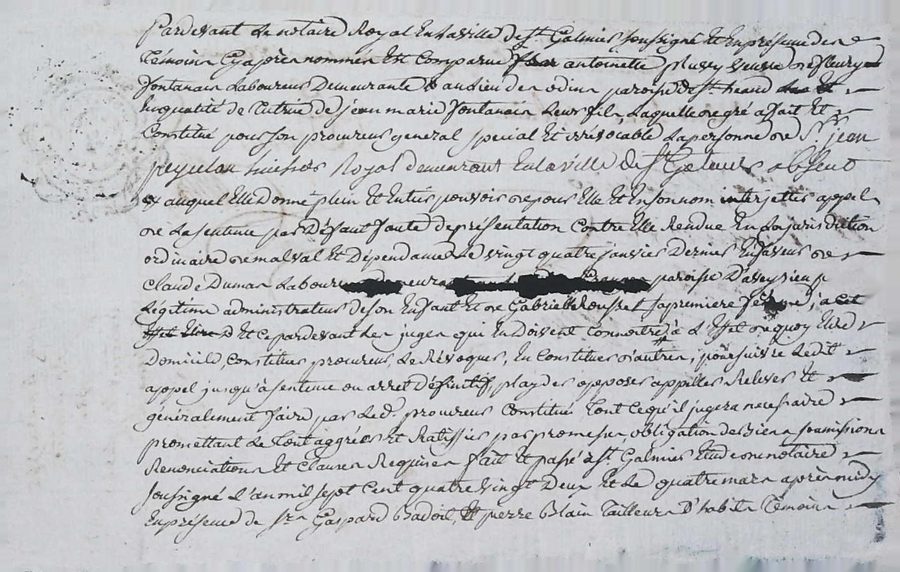 Pardevant Le notaire Royal En Laville de St Galmier soussigné Et En présence des
Témoins Cy après nommés Est Comparue antoinette pluvy veuve de fleury
fontanais Laboureur Demeurante au dieu des odins paroisse de St heand
En qualité de Tutrice de jean marie fontanais Leurs fils, Laquelle de gré a fait Et
Constitué pour son procureur general special Et irrévocable La personne de Sr jean
peyulan huissier Royal demeurant En la ville de St Galmier absent
auquel Elle Donne plein Et Entier pouvoir de pour Elle Et En son nom interjetter appel
de La sentence par Défaut faute de présentation Contre Elle Rendue En La jurisdiction
ordinaire de malval Et Dépendances Le vingt quatre janvier Dernier En faveur de
Claude Dumas Labour paroisse D'aveyzieu
Légitime administrateur de son Enfant Et de Gabrielle sa premiere femme, a cet
Et ce pardevant Les juges qui En doivent Connoitre, a L'Effet de quoy Elire
Domicile, Constituer procureur, Le Révoquer, En Constituer D'autres, poursuivre Ledit
appel jusqu'à sentence ou arret Définitif, playder opposer appeller Relever Et
généralement faire par Led. procureur Constitué Tout Ce qu'il jugera nécessaire
promettant Le Tout aggréer Et Ratiffier par promesse, obligation de Biens soumissions
Renonciations Et Clauses Requises fait Et passé a St Galmier Etude du notaire
soussigné L'an mil sept Cent quatre vingt Deux Et Le quatre mars après midy
En présence de Srs Gaspard Badoil, Et pierre Blain Tailleurs D'habits Témoins